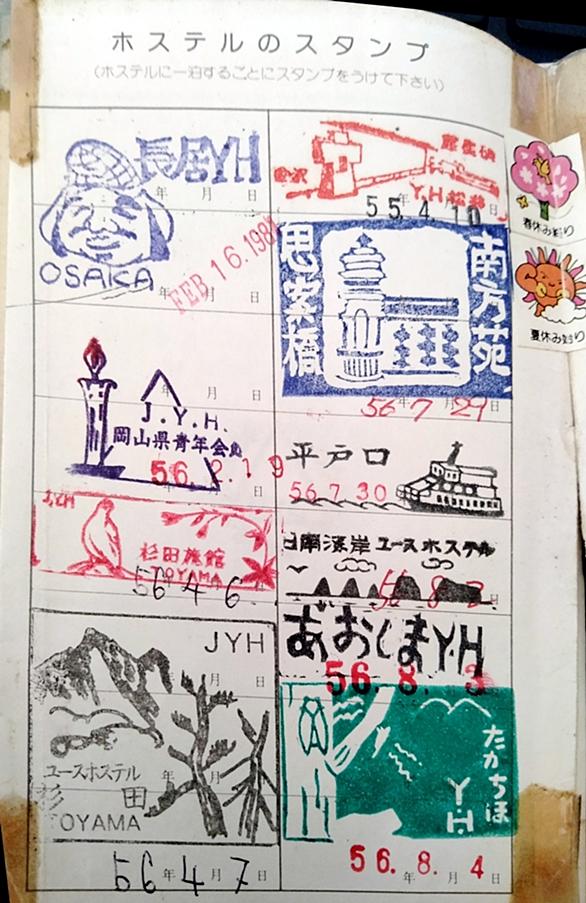 ホステルのスタンプ
(ホステルに一泊するごとにスタンプをうけて下さい)
長居YH
年 月 日
OSAKA
FEB 16.1981
年 月 日
J.Y.H.
岡山県青年会館
56.2.19
J.Y.H
杉田旅館
TOYAMA
56 4 6
JYH
ユースホステル
杉田
TOYAMA
56年4月7日
Y.H松井
55.4.10
思案橋
南方苑
56年7月29日
平戸口
56.7.30
日南海岸ユースホステル
56 8 2
あおしまY.H
56.8.3
たかちほ
Y.H
56.8.4
年 月 日
春休み祭り
夏休み祭り